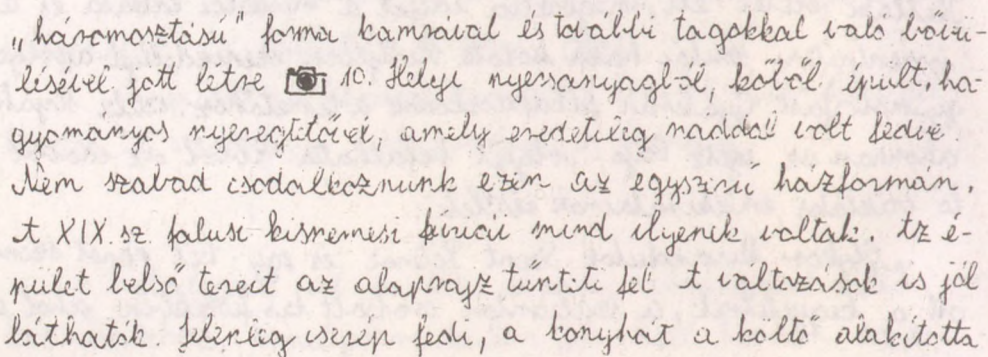 „háromosztású" forma kamrával és további tagokkal való bővü-
lésével jött létre 📷 10. Helyi nyersanyagból, kőből épült, ha-
gyományos nyeregtetővel, amely eredetileg náddal volt fedve
Nem szabad csodálkoznunk ezen az egyszerű házformán.
A XIX. sz falusi kisnemesi kúriái mind ilyenek voltak. Az é-
pület belső tereit az alaprajz tünteti fel A változások is jól
láthatók Jelenleg cserép fedi, a konyhát a költő alakította